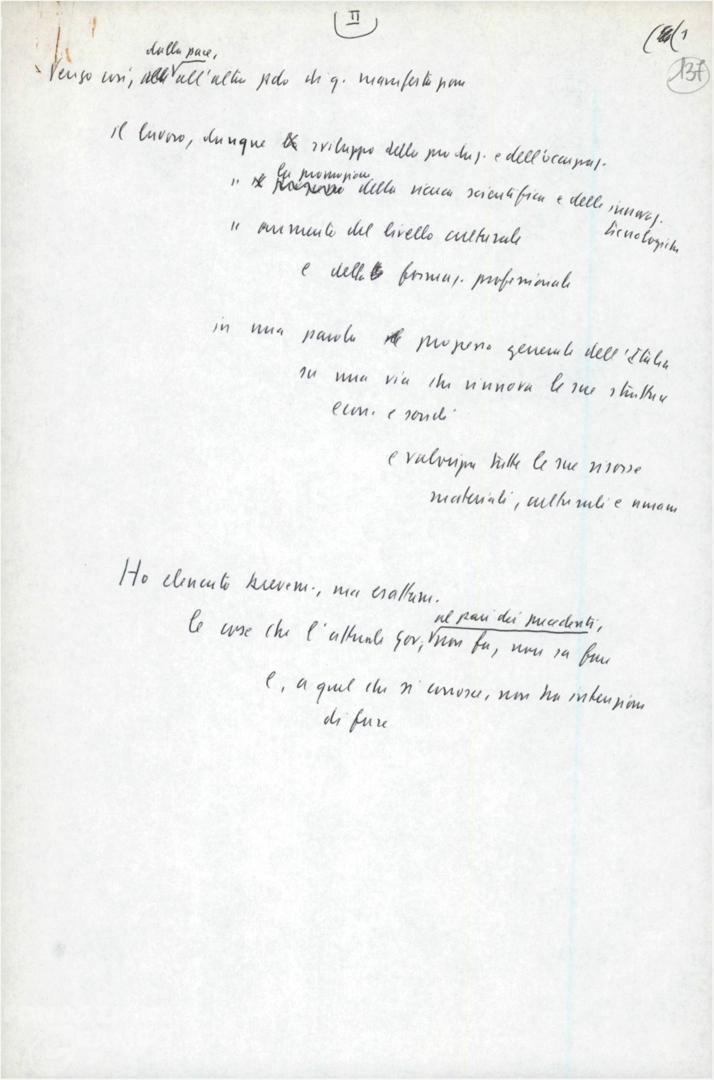 II
137
dalla pace,
Vengo così, all'altro pdo di q. manifestazione
il lavoro, dunque sviluppo della produz. e dell'occupaz.
" la promozione della ricerca scientifica e delle innovaz.
tecnologiche
" aumento del livello culturale
e della formaz. professionale
in una parola progresso generale dell'Italia
su una via che rinnova le sue strutture
econ. e sociali
e valorizza tutte le sue risorse
materiali, culturali e umane
Ho elencato brevem., ma esattam.
al pari dei precedenti,
le cose che l'attuale gov., non fa, non sa fare
e, a quel che si conosce, non ha intenzione
di fare